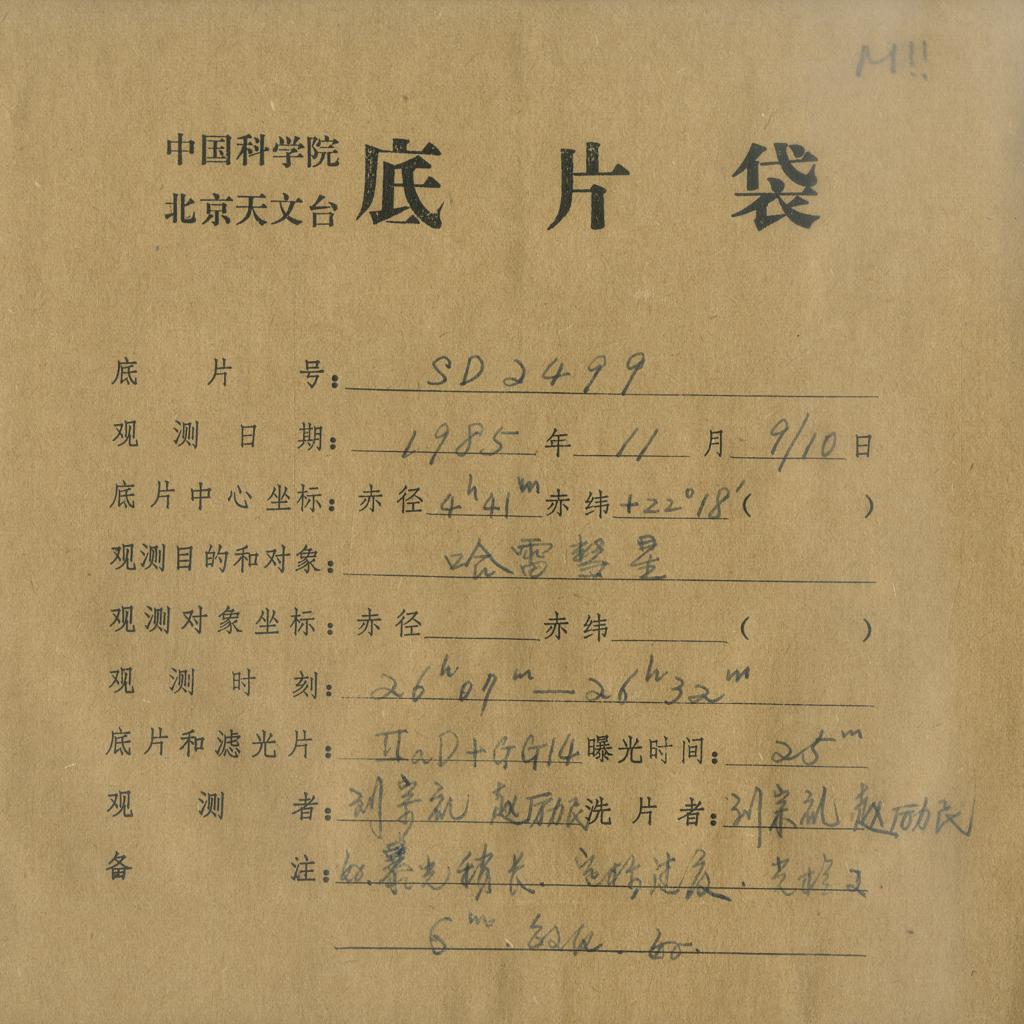 M!!
中国科学院
北京天文台
底片袋
底片号: SD2499
观测日期: 1985年11月9/10日
底片中心坐标: 赤径4ʰ41ᵐ赤纬+22°18′( )
观测目的和对象: 哈雷彗星
观测对象坐标: 赤径 赤纬 ( )
观测时刻: 26ʰ07ᵐ—26ʰ32ᵐ
底片和滤光片: IIaD+GG14曝光时间: 25ᵐ
观测者: 刘宗礼 赵励民洗片者: 刘宗礼 赵励民
备注: 好.暴光稍长.
6ᵐ 敏化. 好.